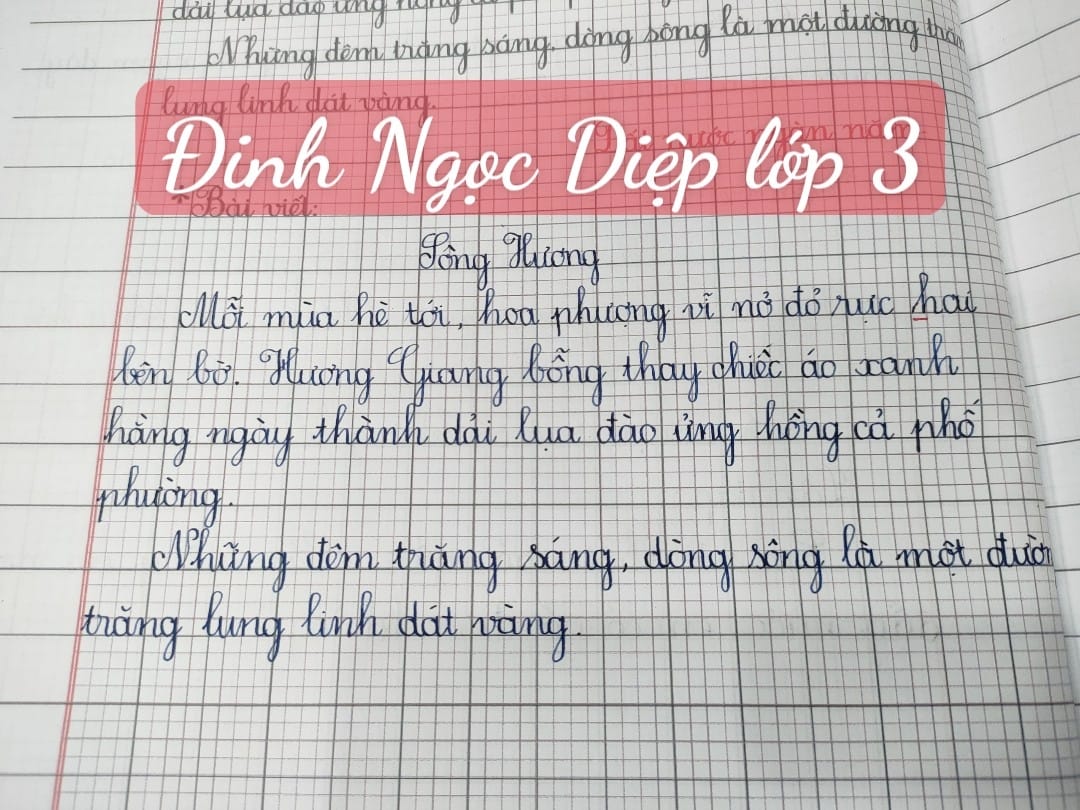 dải lụa đào ửng hồng
Những đêm trăng sáng, dòng sông là một đường trăn
lung linh đát vàng.
Đinh Ngọc Diệp lớp 3
* Bài viết:
Sông Hương
Mỗi mùa hè tới, hoa phượng vĩ nở đỏ rực hai
bên bờ. Hương Giang bỗng thay chiếc áo xanh
hằng ngày thành dải lụa đào ửng hồng cả phố
phường.
Những đêm trăng sáng, dòng sông là một đườn
trăng lung linh dát vàng.